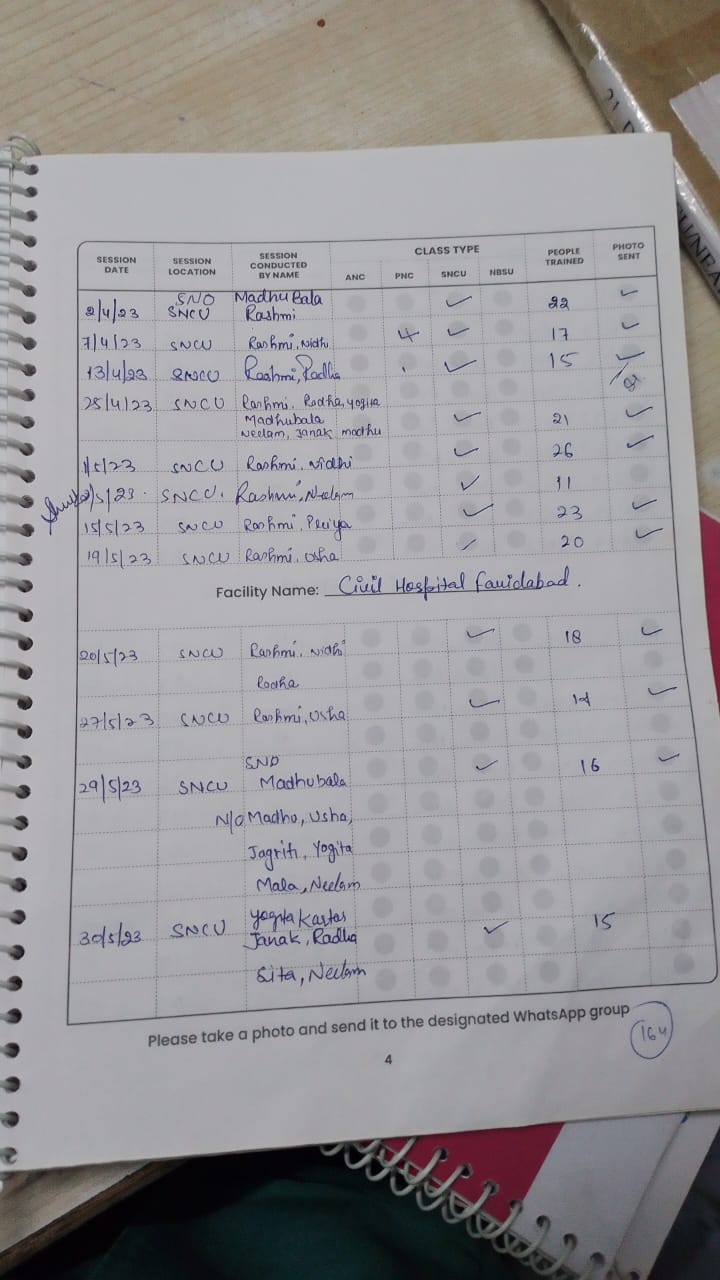 SESSION DATE SESSION LOCATION SESSION CONDUCTED BY NAME CLASS TYPE ANC PNC SNCU NBSU PEOPLE TRAINED PHOTO SENT
SNO Madhu Bala
2/4/23 SNCU Rashmi ✓ 22 ✓
7/4/23 SNCU Rashmi, Nidhi 4 ✓ 17 ✓
13/4/23 SNCU Rashmi, Radha ✓ 15 ✓
25/4/23 SNCU Rashmi, Radha, yogita
Madhubala ✓ 21 ✓
Neelam, Janak madhu
1/5/23 SNCU Rashmi, Nidhi ✓ 26 ✓
/5/23. SNCU, Rashmi, Neelam ✓ 11
15/5/23 SNCU Rashmi, Priya ✓ 23 ✓
19/5/23 SNCU Rashmi, Usha ✓ 20 ✓
Facility Name: Civil Hospital Faridabad.
20/5/23 SNCU Rashmi, Nidhi ✓ 18 ✓
Radha
27/5/23 SNCU Rashmi, Usha ✓ 14 ✓
SNO
29/5/23 SNCU Madhubala ✓ 16 ✓
N/O Madhu, Usha,
Jagriti, Yogita
Mala, Neelam
Yogita
30/5/23 SNCU Janak, Radha ✓ 15
Sita, Neelam
Please take a photo and send it to the designated WhatsApp group
164
4